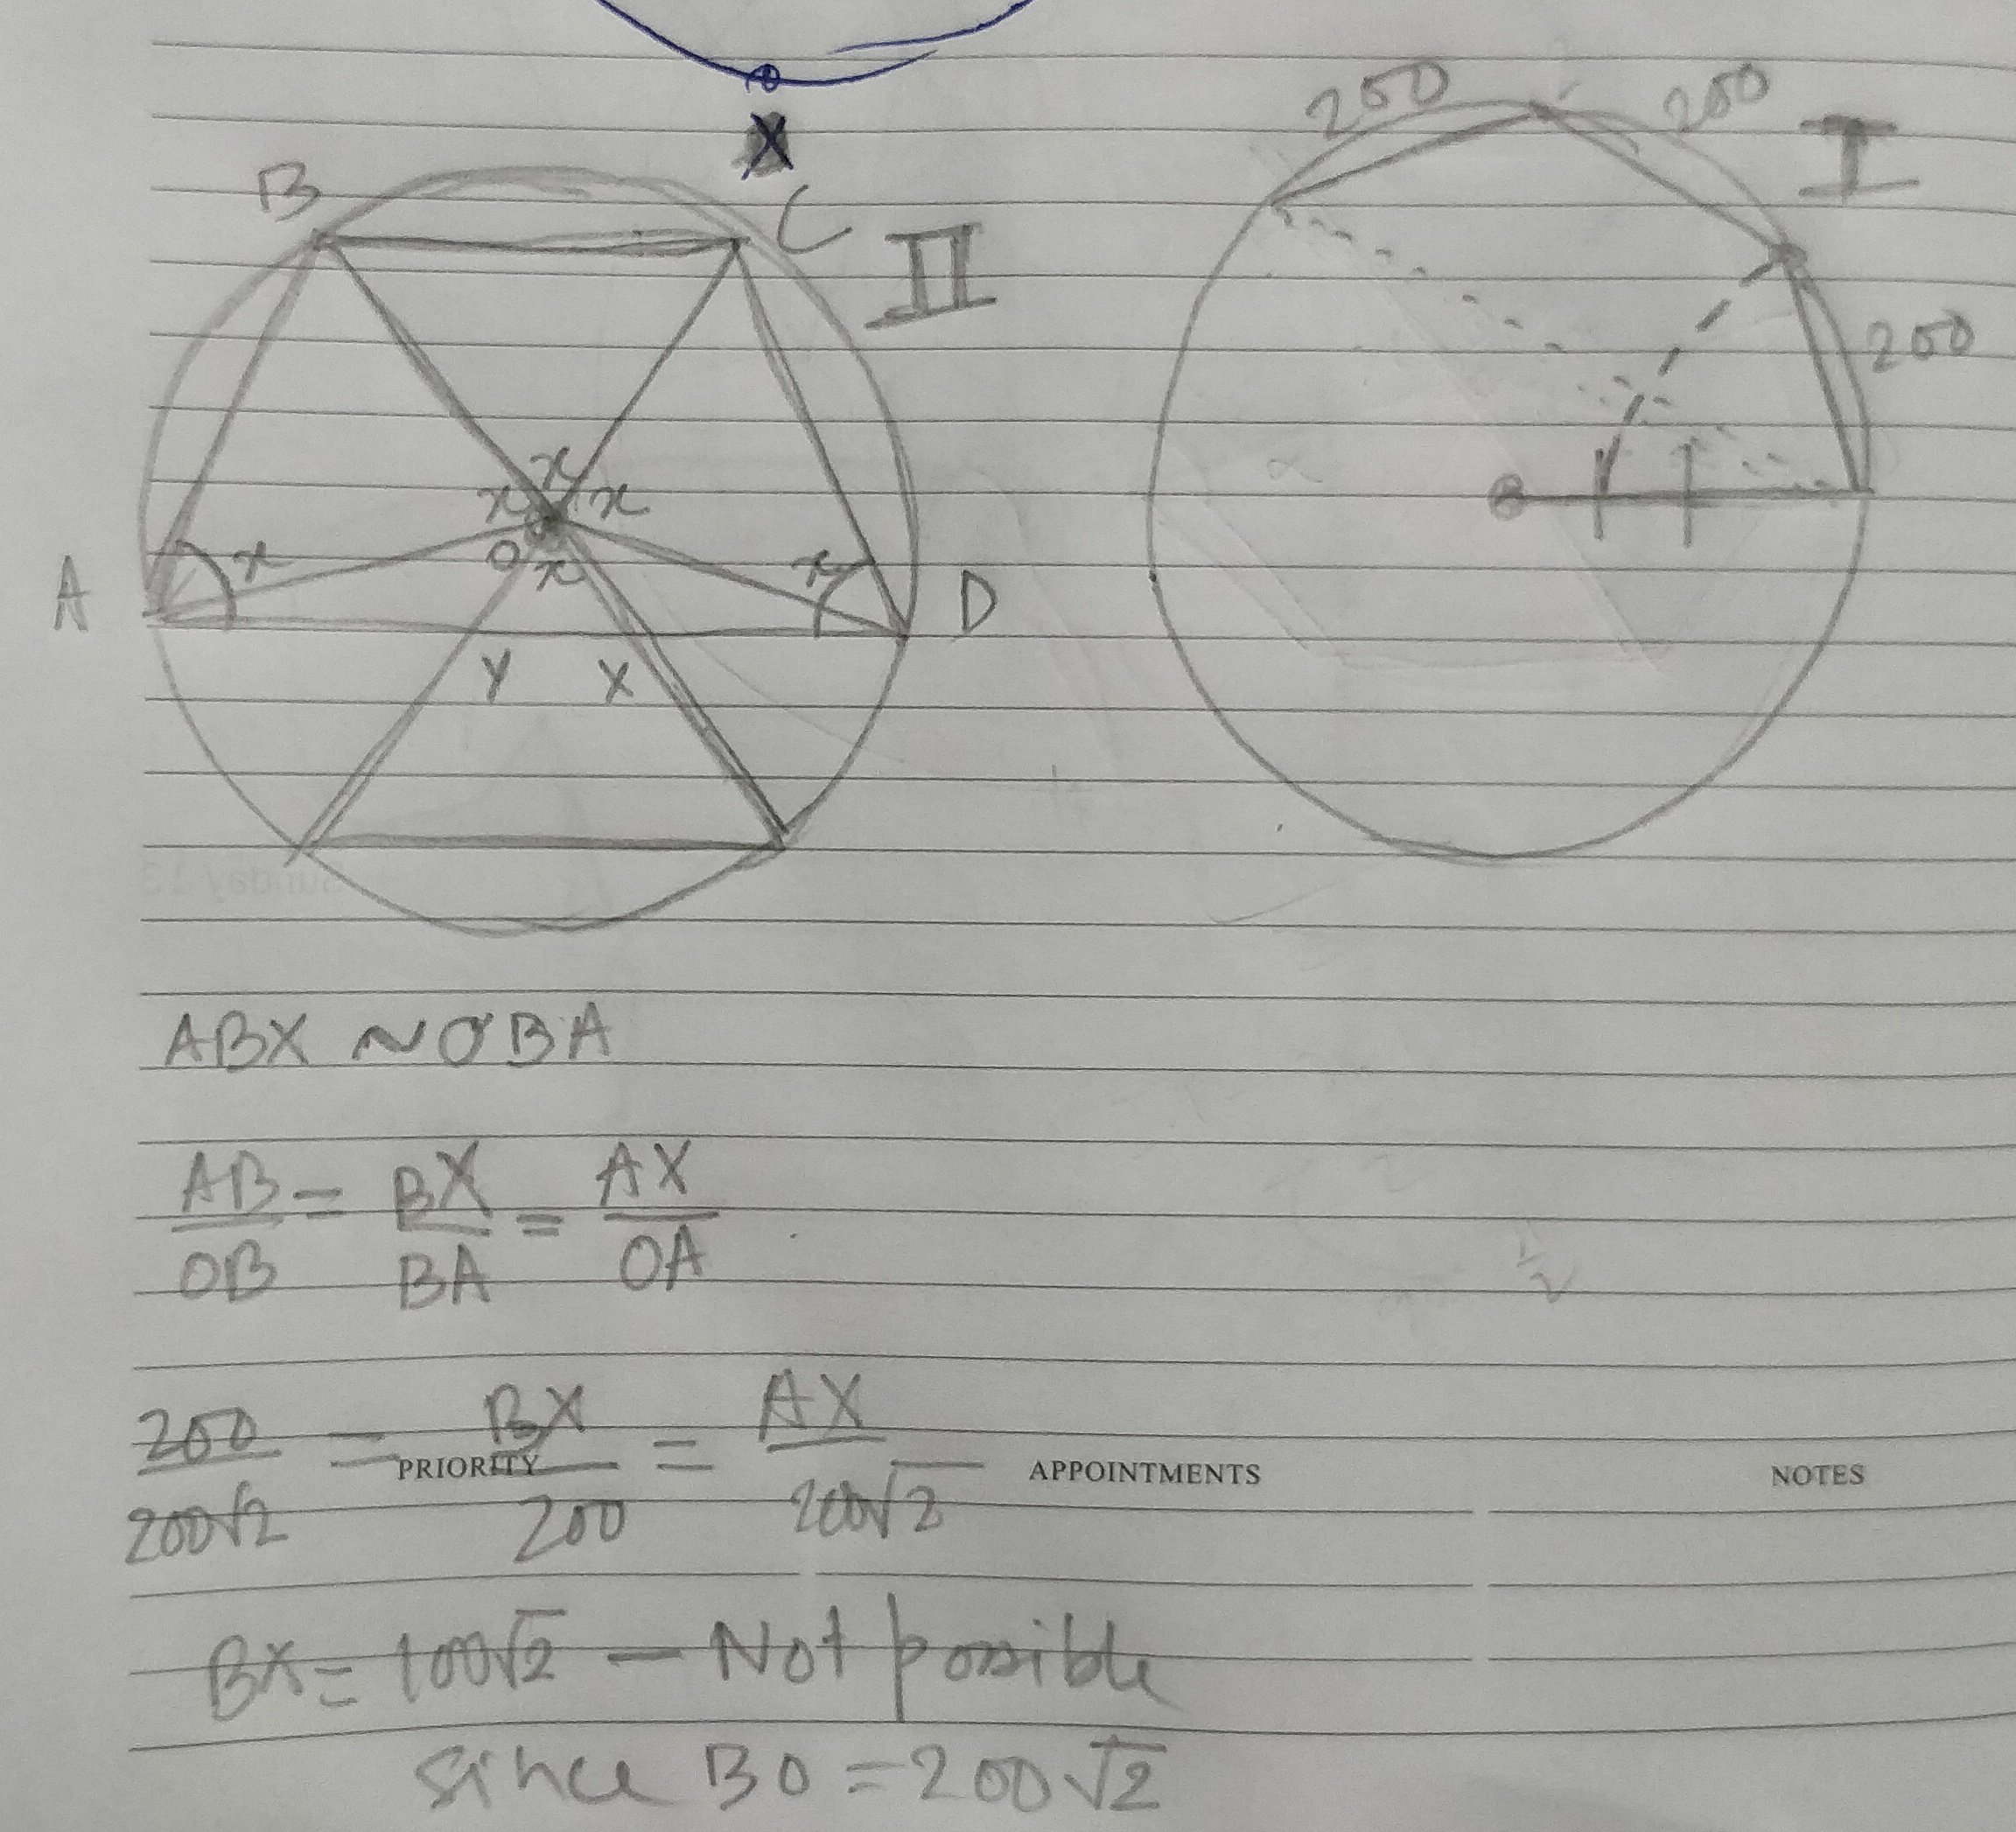 X
200 200
I
B C
II
200
x
x x
O x
A x x D
Y X
Sunday 13
ABX ~ OBA
AB/OB = BX/BA = AX/OA
200/200√2 = BX/200 = AX/200√2
PRIORITY APPOINTMENTS NOTES
BX = 100√2 — Not possible
since BO = 200√2